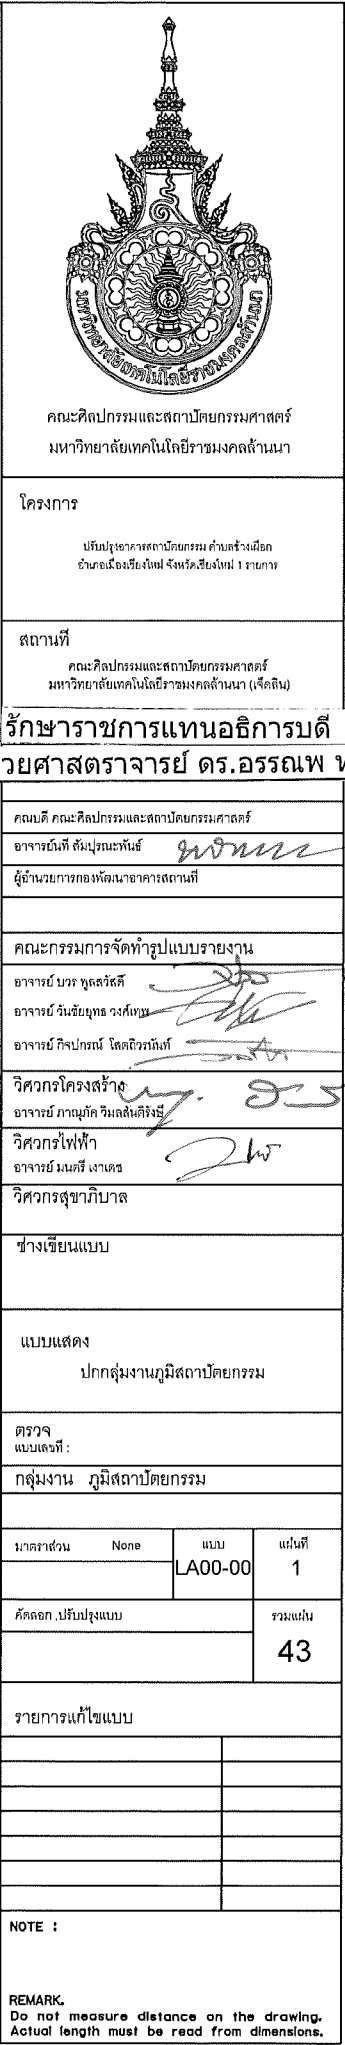 มหาวิทยาลัยเทคโนโลยีราชมงคลล้านนา
คณะศิลปกรรมและสถาปัตยกรรมศาสตร์
มหาวิทยาลัยเทคโนโลยีราชมงคลล้านนา
โครงการ
ปรับปรุงอาคารสถาปัตยกรรม ตำบลช้างเผือก
อำเภอเมืองเชียงใหม่ จังหวัดเชียงใหม่ 1 รายการ
สถานที่
คณะศิลปกรรมและสถาปัตยกรรมศาสตร์
มหาวิทยาลัยเทคโนโลยีราชมงคลล้านนา (เจ็ดลิน)
รักษาราชการแทนอธิการบดี
วยศาสตราจารย์ ดร.อรรณพ ท
คณบดี คณะศิลปกรรมและสถาปัตยกรรมศาสตร์
อาจารย์นที สัมปุรณะพันธ์
ผู้อำนวยการกองพัฒนาอาคารสถานที่
คณะกรรมการจัดทำรูปแบบรายงาน
อาจารย์ บวร พูลสวัสดิ์
อาจารย์ วันชัยยุทธ วงศ์เทพ
อาจารย์ กิจปกรณ์ โสตถิวรนันท์
วิศวกรโครงสร้าง
อาจารย์ ภาณุภัค วิมลสันติรังษี
วิศวกรไฟฟ้า
อาจารย์ มนตรี เงาเดช
วิศวกรสุขาภิบาล
ช่างเขียนแบบ
แบบแสดง
ปกกลุ่มงานภูมิสถาปัตยกรรม
ตรวจ
แบบเลขที่ :
กลุ่มงาน ภูมิสถาปัตยกรรม
มาตราส่วน None แบบ แผ่นที่
LA00-00 1
คัดลอก ,ปรับปรุงแบบ รวมแผ่น
43
รายการแก้ไขแบบ
NOTE :
REMARK.
Do not measure distance on the drawing.
Actual length must be read from dimensions.